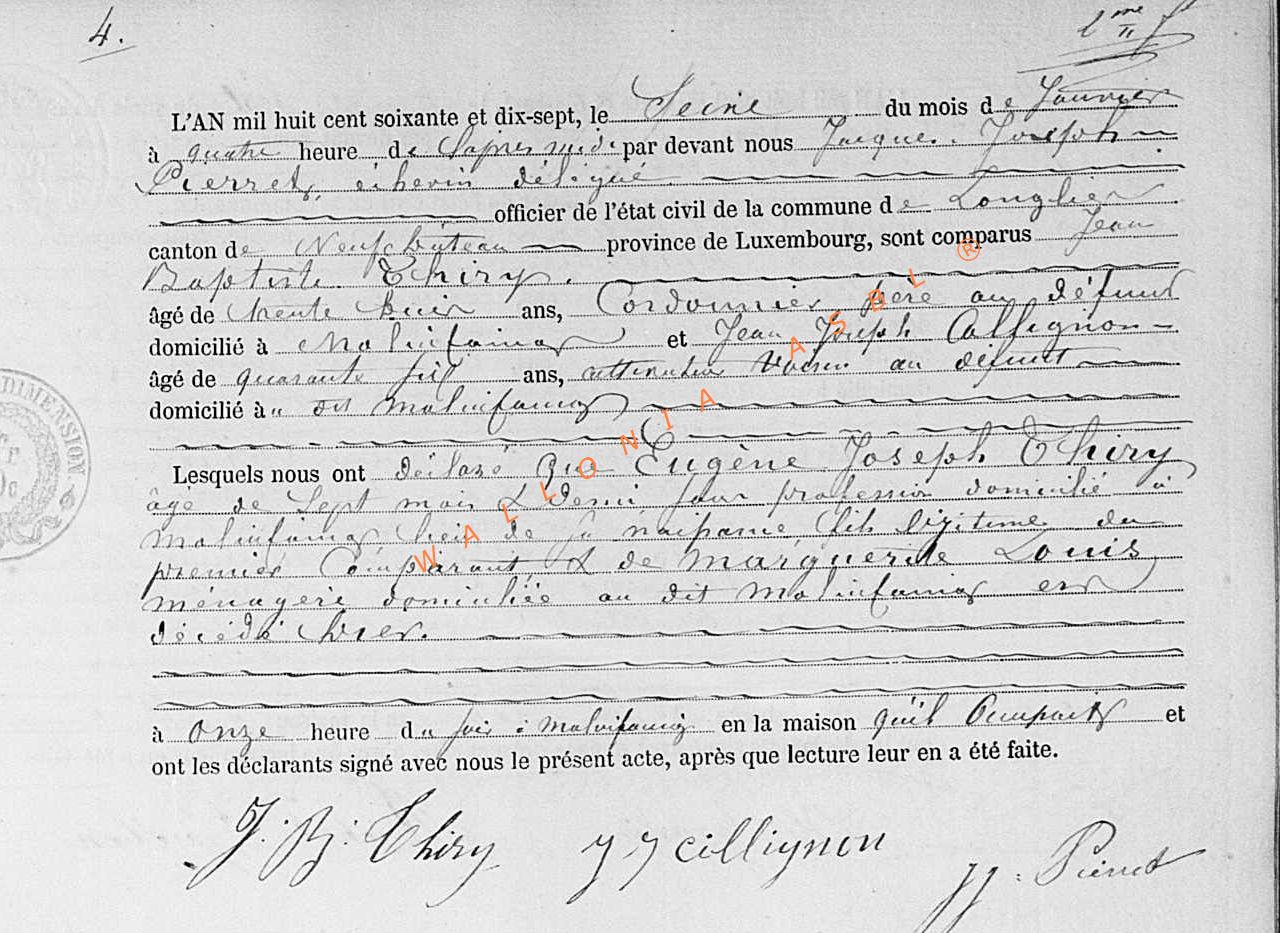 4.
L'AN mil huit cent soixante et dix-sept, le Seize du mois de Janvier
à quatre heure de l'après midi par devant nous Jacques Joseph
Pierret, échevin délégué
officier de l'état civil de la commune de Longlier
canton de Neufchâteau province de Luxembourg, sont comparus Jean
Baptiste Thiry.
âgé de trente huit ans, Cordonnier père au défunt
domicilié à Molinfaing et Jean Joseph Collignon
âgé de quarante six ans, voisin au défunt
domicilié à u dit Molinfaing
Lesquels nous ont déclaré Que Eugène Joseph Thiry
âgé de Sept mois & demi sans profession domicilié à
Molinfaing lieu de sa naissance fils légitime du
premier Comparant & de Marguerite Louis
ménagère domiciliée au dit Molinfaing est
décédé hier.
à Onze heure du soir à Molinfaing en la maison qu'il Occupait et
ont les déclarants signé avec nous le présent acte, après que lecture leur en a été faite.
J. B. Thiry J J cillignon JJ. Pierret
DIMENSION
WALLONIA ASBL ®